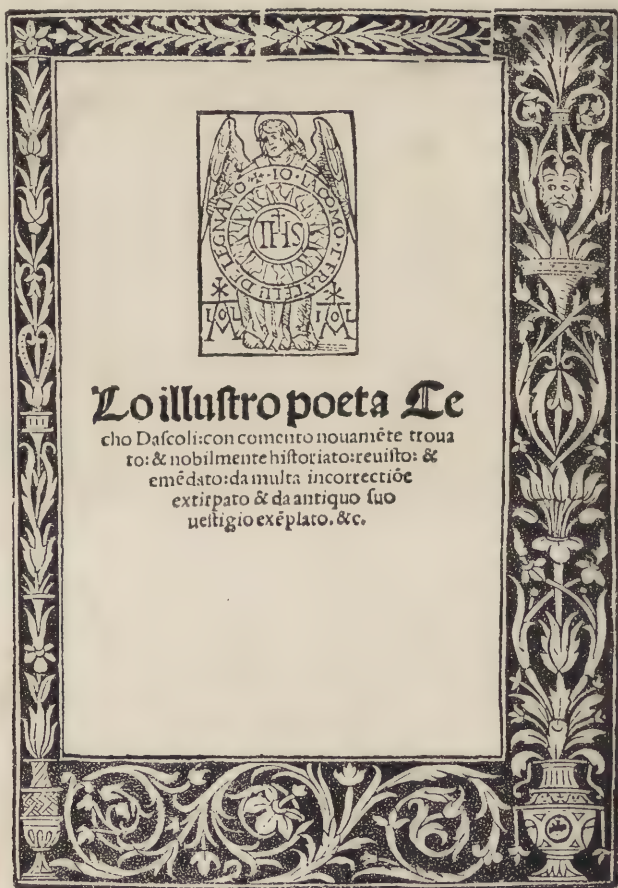 · IO · IACOMO · E FRATELLI DE LEGNANO ·
IHS
Lo illuſtro poeta Ce
cho Daſcoli: con comento nouamẽte troua
to: & nobilmente hiſtoriato: reuiſto: &
emẽdato: da multa incorrectiõe
extirpato & da antiquo ſuo
ueſtigio exẽplato. &c.